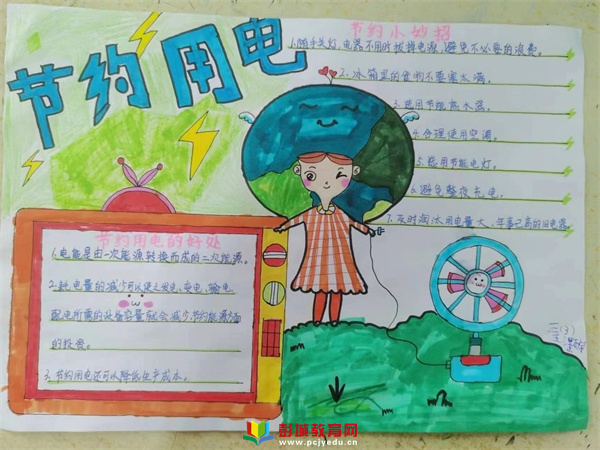 节约用电
节约小妙招
1.随手关灯,电器不用时拔掉电源,避免不必要的浪费。
2.冰箱里的食物不要塞太满。
3.选用节能热水器。
4.合理使用空调。
5.应用节能电灯。
6.避免整夜充电。
7.及时淘汰用电量大、年事已高的旧电器
节约用电的好处
1.电能是由一次能源转换而成的二次能源。
2.耗电量的减少可以使之发电、变电、输电
配电所需的设备容量就会减少,节约能源方面
的投资。
3.节约用电还可以降低生产成本。
彭城教育网
www.pcjyedu.cn